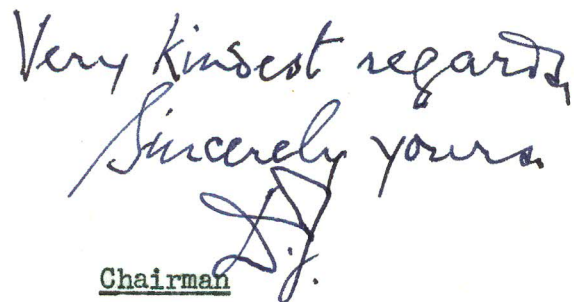 Very kindest regards,
Sincerely yours.
D.J.
Chairman